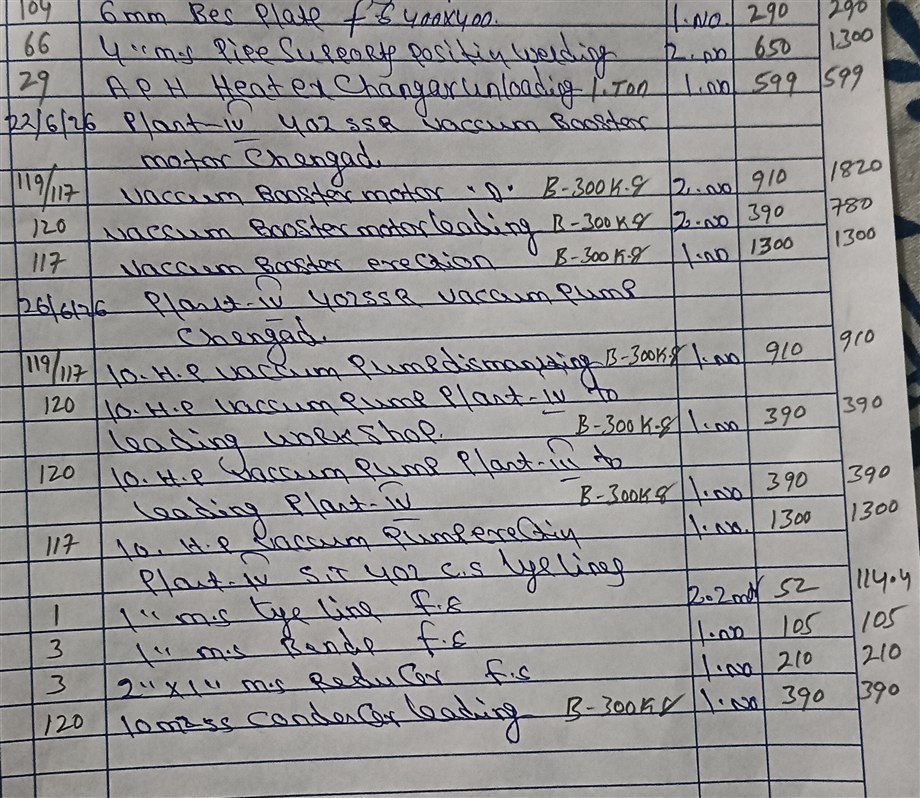 104 6mm Bes Plate f.s 400x400. 1.NO. 290 290
66 4" m.s Pipe Supports Positiu Welding 2.no 650 1300
29 APH Heater Changar Unloading 1.Ton 1.no 599 599
22/6/26 Plant-IV 402 SSR Vaccum Booster
motor Chengad.
119/117 Vaccum Booster motor "D" B-300K.g 2.no 910 1820
120 Vaccum Booster motor leading B-300K.g 2.no 390 780
117 Vaccum Booster erection B-300K.g 1.no 1300 1300
26/6/26 Plant-IV 402 SSR Vaccum Pump
Chengad.
119/117 10.H.P Vaccum Pump dismanting B-300K.g 1.no 910 910
120 10.H.P Vaccum Pump Plant-IV to
leading workshop. B-300K.g 1.no 390 390
120 10.H.P Vaccum Pump Plant-III to
leading Plant-IV B-300Kg 1.no 390 390
117 10.H.P Vaccum Pump erectiu 1.no. 1300 1300
Plant-IV S.T 402 C.S lye lines
1 1" m.s lye line f.s 2.2mtr 52 114.4
3 1" m.s Bande f.s 1.no 105 105
3 2"x1" m.s Reducer f.s 1.no 210 210
120 10m2ss condencer leading B-300Kg 1.no 390 390